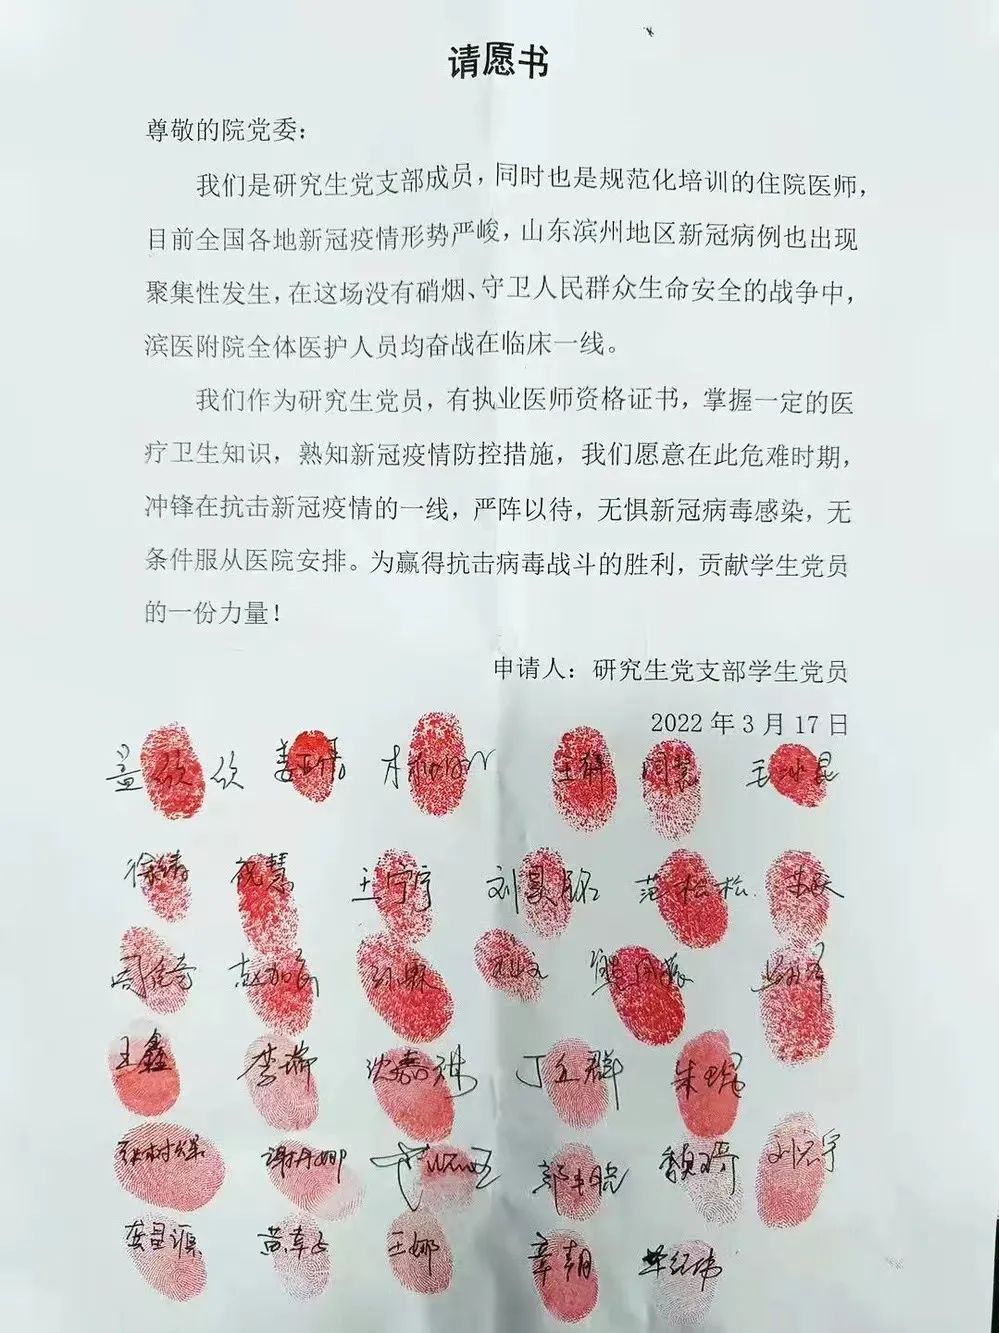 请愿书
尊敬的院党委：
我们是研究生党支部成员，同时也是规范化培训的住院医师，
目前全国各地新冠疫情形势严峻，山东滨州地区新冠病例也出现
聚集性发生，在这场没有硝烟、守卫人民群众生命安全的战争中，
滨医附院全体医护人员均奋战在临床一线。
我们作为研究生党员，有执业医师资格证书，掌握一定的医
疗卫生知识，熟知新冠疫情防控措施，我们愿意在此危难时期，
冲锋在抗击新冠疫情的一线，严阵以待，无惧新冠病毒感染，无
条件服从医院安排。为赢得抗击病毒战斗的胜利，贡献学生党员
的一份力量！
申请人：研究生党支部学生党员
2022 年 3 月 17 日
王宁宁 范松松
王鑫 李瑞 沈嘉琪
谢丹娜 刘宏宇
王娜 章朝